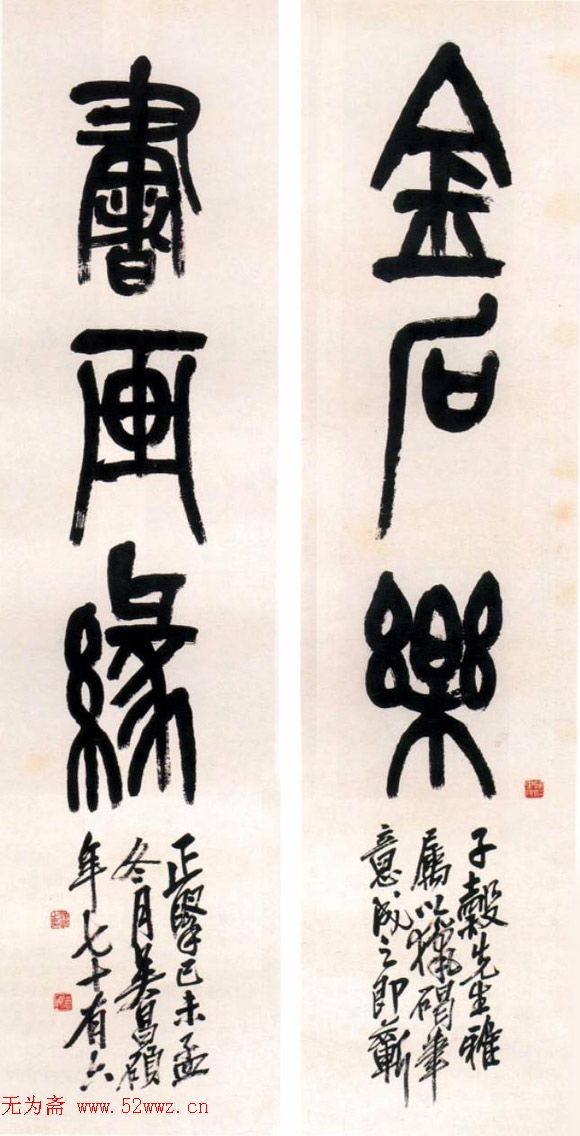 金石樂
子穀先生雅
屬以獵碣筆
意成之即蘄
書画緣
正擘己未孟
冬月吴昌碩
年七十有六
无为斋 www.52wwz.cn